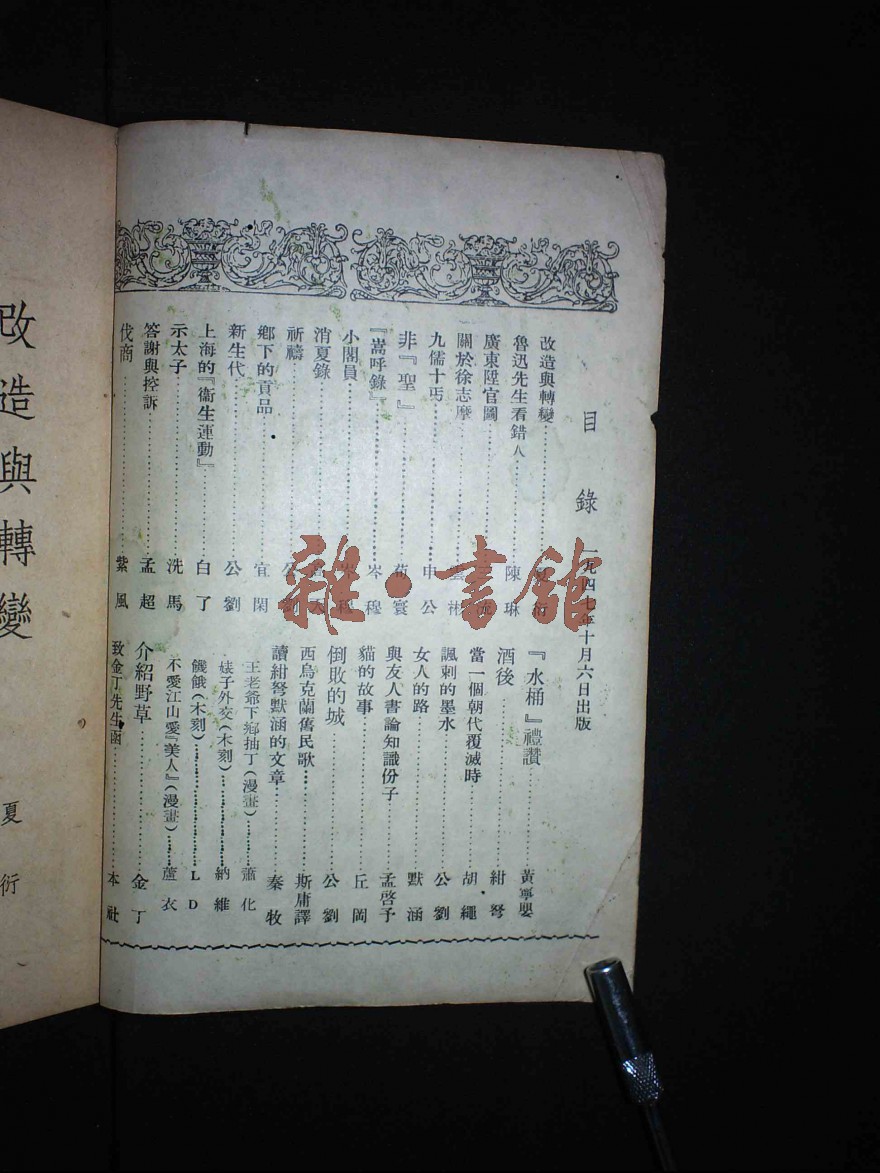 目錄 一九四七年十月六日出版
改造與轉變 夏衍
魯迅先生看錯人 陳琳
廣東陞官圖
關於徐志摩 雲彬
九儒十丐 申公
非『聖』 荀寰
『嵩呼錄』 岑穆
小閣員 岑穆
消夏錄
祈禱 公劉
鄉下的貢品 宜閑
新生代 公劉
上海的『衞生運動』 白了
示太子 洗馬
答謝與控訴 孟超
伐商 紫風
『水桶』禮讚 黃寧嬰
酒後 紺弩
當一個朝代覆滅時 胡繩
諷刺的墨水 公劉
女人的路 默涵
與友人書論知識份子 孟啓予
貓的故事 丘岡
倒敗的城 公劉
西烏克蘭舊民歌 斯庸譯
讀紺弩默涵的文章 秦牧
王老爺下鄉抽丁(漫畫) 蕭化
婊子外交(木刻) 納維
饑餓(木刻) L D
不愛江山愛『美人』(漫畫) 蘆衣
介紹野草 金丁
致金丁先生函 本社
改造與轉變
夏衍
雜·書館